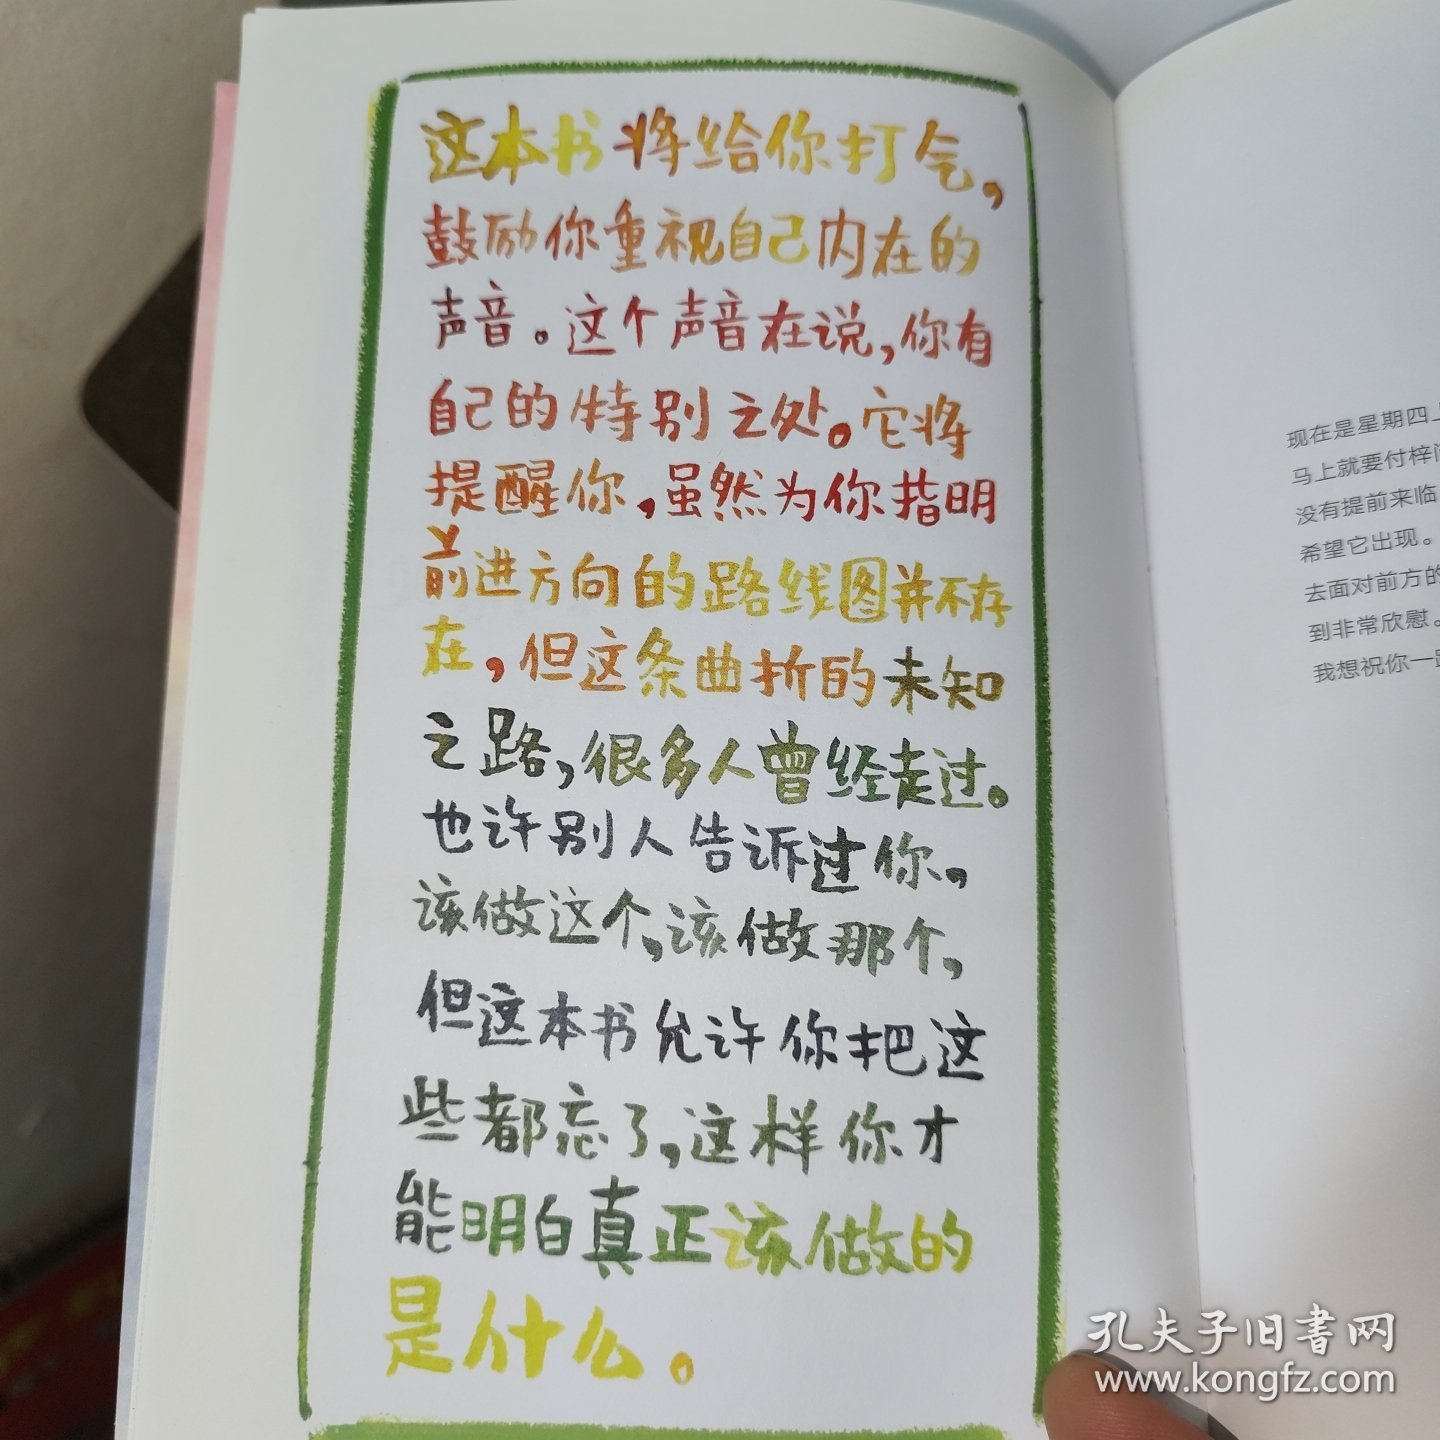 这本书将给你打气，
鼓励你重视自己内在的
声音。这个声音在说，你有
自己的特别之处。它将
提醒你，虽然为你指明
前进方向的路线图并不存
在，但这条曲折的未知
之路，很多人曾经走过。
也许别人告诉过你，
该做这个，该做那个，
但这本书允许你把这
些都忘了，这样你才
能明白真正该做的
是什么。
现在是星期四上
马上就要付梓
没有提前来临
希望它出现。
去面对前方的
到非常欣慰。
我想祝你一路
孔夫子旧书网
www.kongfz.com